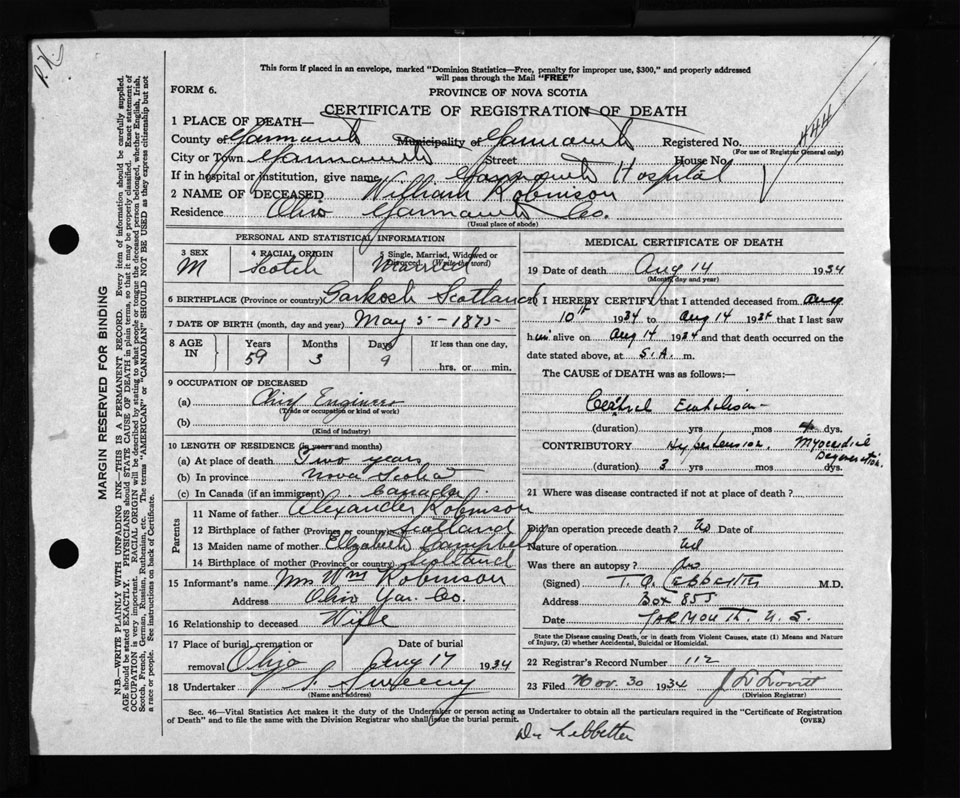 P.H.S
This form if placed in an envelope, marked "Dominion Statistics—Free, penalty for improper use, $300," and properly addressed
will pass through the Mail "FREE"
FORM 6.
PROVINCE OF NOVA SCOTIA
CERTIFICATE OF REGISTRATION OF DEATH
444
1 PLACE OF DEATH—
County of Yarmouth Municipality of Yarmouth Registered No.
(For use of Registrar General only)
City or Town Yarmouth Street House No.
If in hospital or institution, give name Yarmouth Hospital
2 NAME OF DECEASED William Robinson
Residence Ohio Yarmouth Co.
(Usual place of abode)
PERSONAL AND STATISTICAL INFORMATION
3 SEX M
4 RACIAL ORIGIN Scotch
5 Single, Married, Widowed or Divorced. (Write the word) Married
6 BIRTHPLACE (Province or country) Scotland
7 DATE OF BIRTH (month, day and year) May 5-1875
8 AGE IN Years 59 Months 3 Days 9 If less than one day,
hrs. or min.
9 OCCUPATION OF DECEASED
(a) Chief Engineer
(Trade or occupation or kind of work)
(b)
(Kind of industry)
10 LENGTH OF RESIDENCE (in years and months)
(a) At place of death Two years
(b) In province Nova Scotia
(c) In Canada (if an immigrant) Canada
Parents
11 Name of father Alexander Robinson
12 Birthplace of father (Province or country) Scotland
13 Maiden name of mother Elizabeth Campbell
14 Birthplace of mother (Province or country) Scotland
15 Informant's name Mrs Wm Robinson
Address Ohio Yar. Co.
16 Relationship to deceased Wife
17 Place of burial, cremation or removal Ohio Date of burial Aug 17 1934
18 Undertaker Sweeny
(Name and address)
MEDICAL CERTIFICATE OF DEATH
19 Date of death Aug 14 1934
(Month, day and year)
20 I HEREBY CERTIFY that I attended deceased from Aug
10th 1934 to Aug 14 1934 that I last saw
him alive on Aug 14 1934 and that death occurred on the
date stated above, at 5.A. m.
The CAUSE of DEATH was as follows:—
Cerebral Embolism
(duration) yrs mos 4 dys.
CONTRIBUTORY Hypertension. Myocardial Degeneration.
(duration) 3 yrs mos dys.
21 Where was disease contracted if not at place of death?
Did an operation precede death? No Date of
Nature of operation
Was there an autopsy? No
(Signed) M.D.
Address Box 855
Date YARMOUTH. N.S.
State the Disease causing Death, or in death from Violent Causes, state (1) Means and Nature
of Injury, (2) whether Accidental, Suicidal or Homicidal.
22 Registrar's Record Number 112
23 Filed Nov. 30 1934
(Division Registrar)
Sec. 46—Vital Statistics Act makes it the duty of the Undertaker or person acting as Undertaker to obtain all the particulars required in the "Certificate of Registration
of Death" and to file the same with the Division Registrar who shall issue the burial permit.
(OVER)
Dr Lebbetter
MARGIN RESERVED FOR BINDING
N.B.—WRITE PLAINLY WITH UNFADING INK—THIS IS A PERMANENT RECORD. Every item of information should be carefully supplied.
AGE should be stated EXACTLY. PHYSICIANS should STATE CAUSE OF DEATH in plain terms, so that it may be properly classified. Exact statement of
OCCUPATION is very important. RACIAL ORIGIN will be described by stating to what people or tongue the deceased person belonged, whether English, Irish,
Scotch, French, German, Russian, Ruthenian, etc. The terms "AMERICAN" or "CANADIAN" SHOULD NOT BE USED as they express citizenship but not
a race or people. See instructions on back of Certificate.